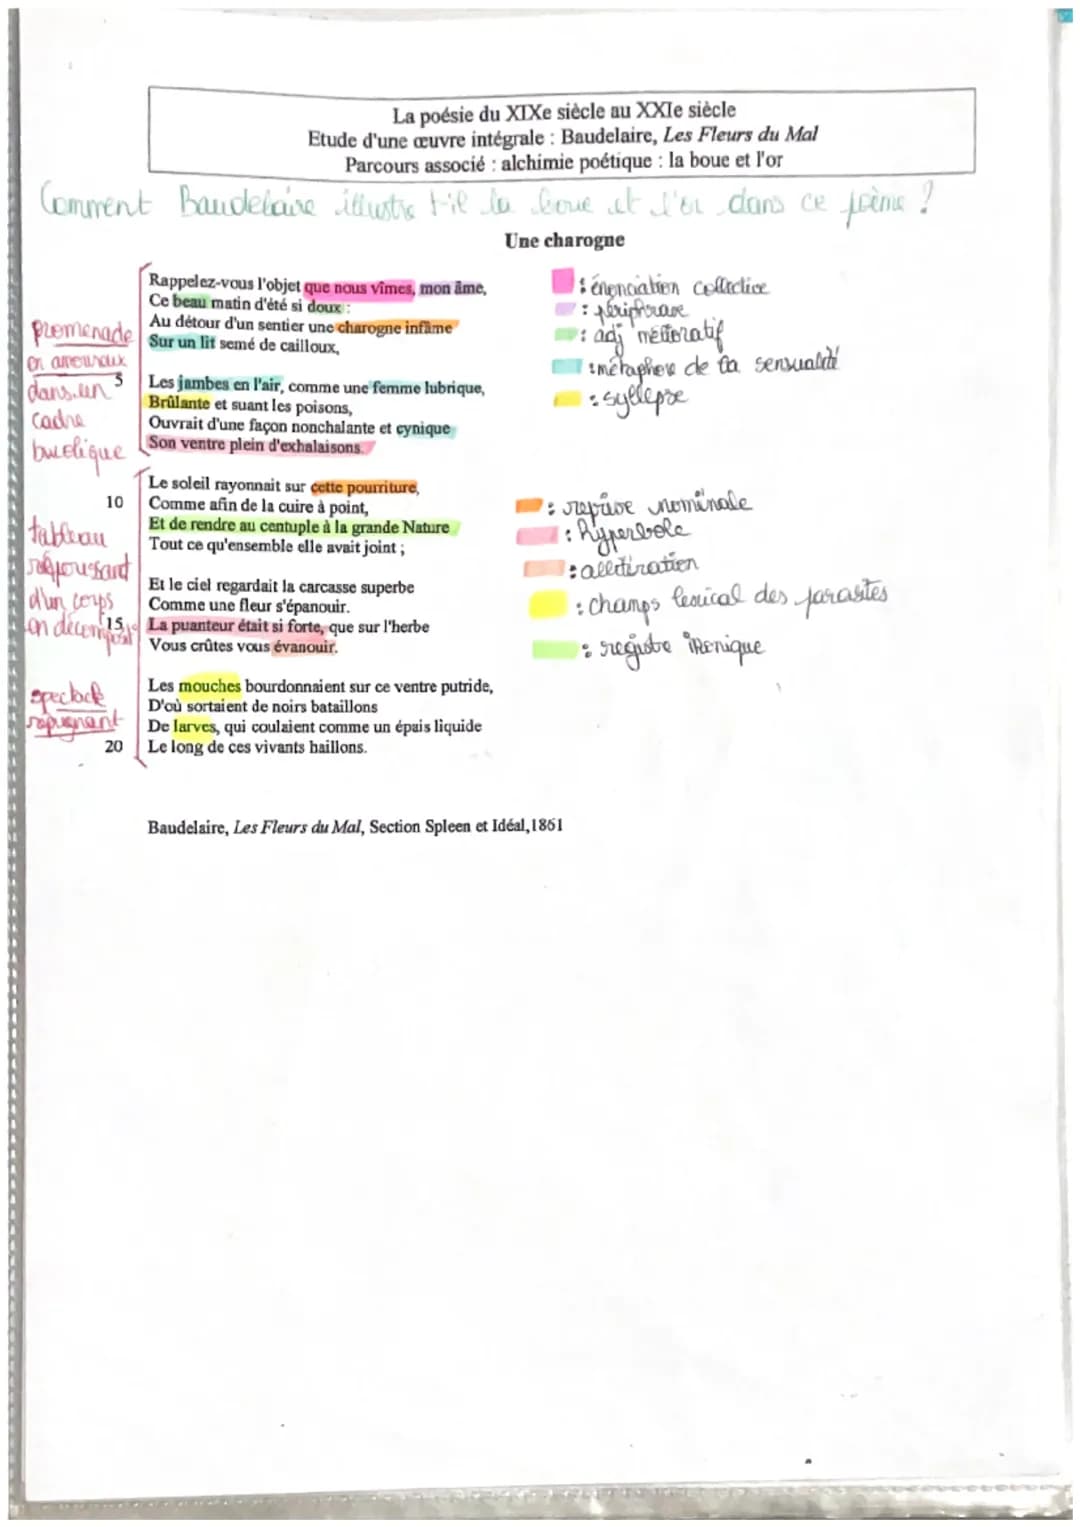 La poésie du XIXe siècle au XXIe siècle
Etude d'une œuvre intégrale : Baudelaire, Les Fleurs du Mal
Parcours associé : alchimie poétique : la boue et l'or
Comment Baudelaire illustre t-il la boue et l'or dans ce poème ?
Une charogne
Rappelez-vous l'objet que nous vîmes, mon âme,
Ce beau matin d'été si doux :
Au détour d'un sentier une charogne infâme
Sur un lit semé de cailloux,
promenade
en amoureux
dans un
cadre
bucolique
5
Les jambes en l'air, comme une femme lubrique,
Brûlante et suant les poisons,
Ouvrait d'une façon nonchalante et cynique
Son ventre plein d'exhalaisons.
: énonciation collective
: périphrase
: adj mélioratif
: métaphore de la sensualité
: syllepse
Le soleil rayonnait sur cette pourriture,
10 Comme afin de la cuire à point,
Et de rendre au centuple à la grande Nature
Tout ce qu'ensemble elle avait joint ;
tableau
repoussant
d'un corps
en décomposit°
Et le ciel regardait la carcasse superbe
Comme une fleur s'épanouir.
15 La puanteur était si forte, que sur l'herbe
Vous crûtes vous évanouir.
: reprise nominale
: hyperbole
: allitération
: champs lexical des parasites
: registre iRenique
spectacle
répugnant
Les mouches bourdonnaient sur ce ventre putride,
D'où sortaient de noirs bataillons
De larves, qui coulaient comme un épais liquide
20 Le long de ces vivants haillons.
Baudelaire, Les Fleurs du Mal, Section Spleen et Idéal,1861